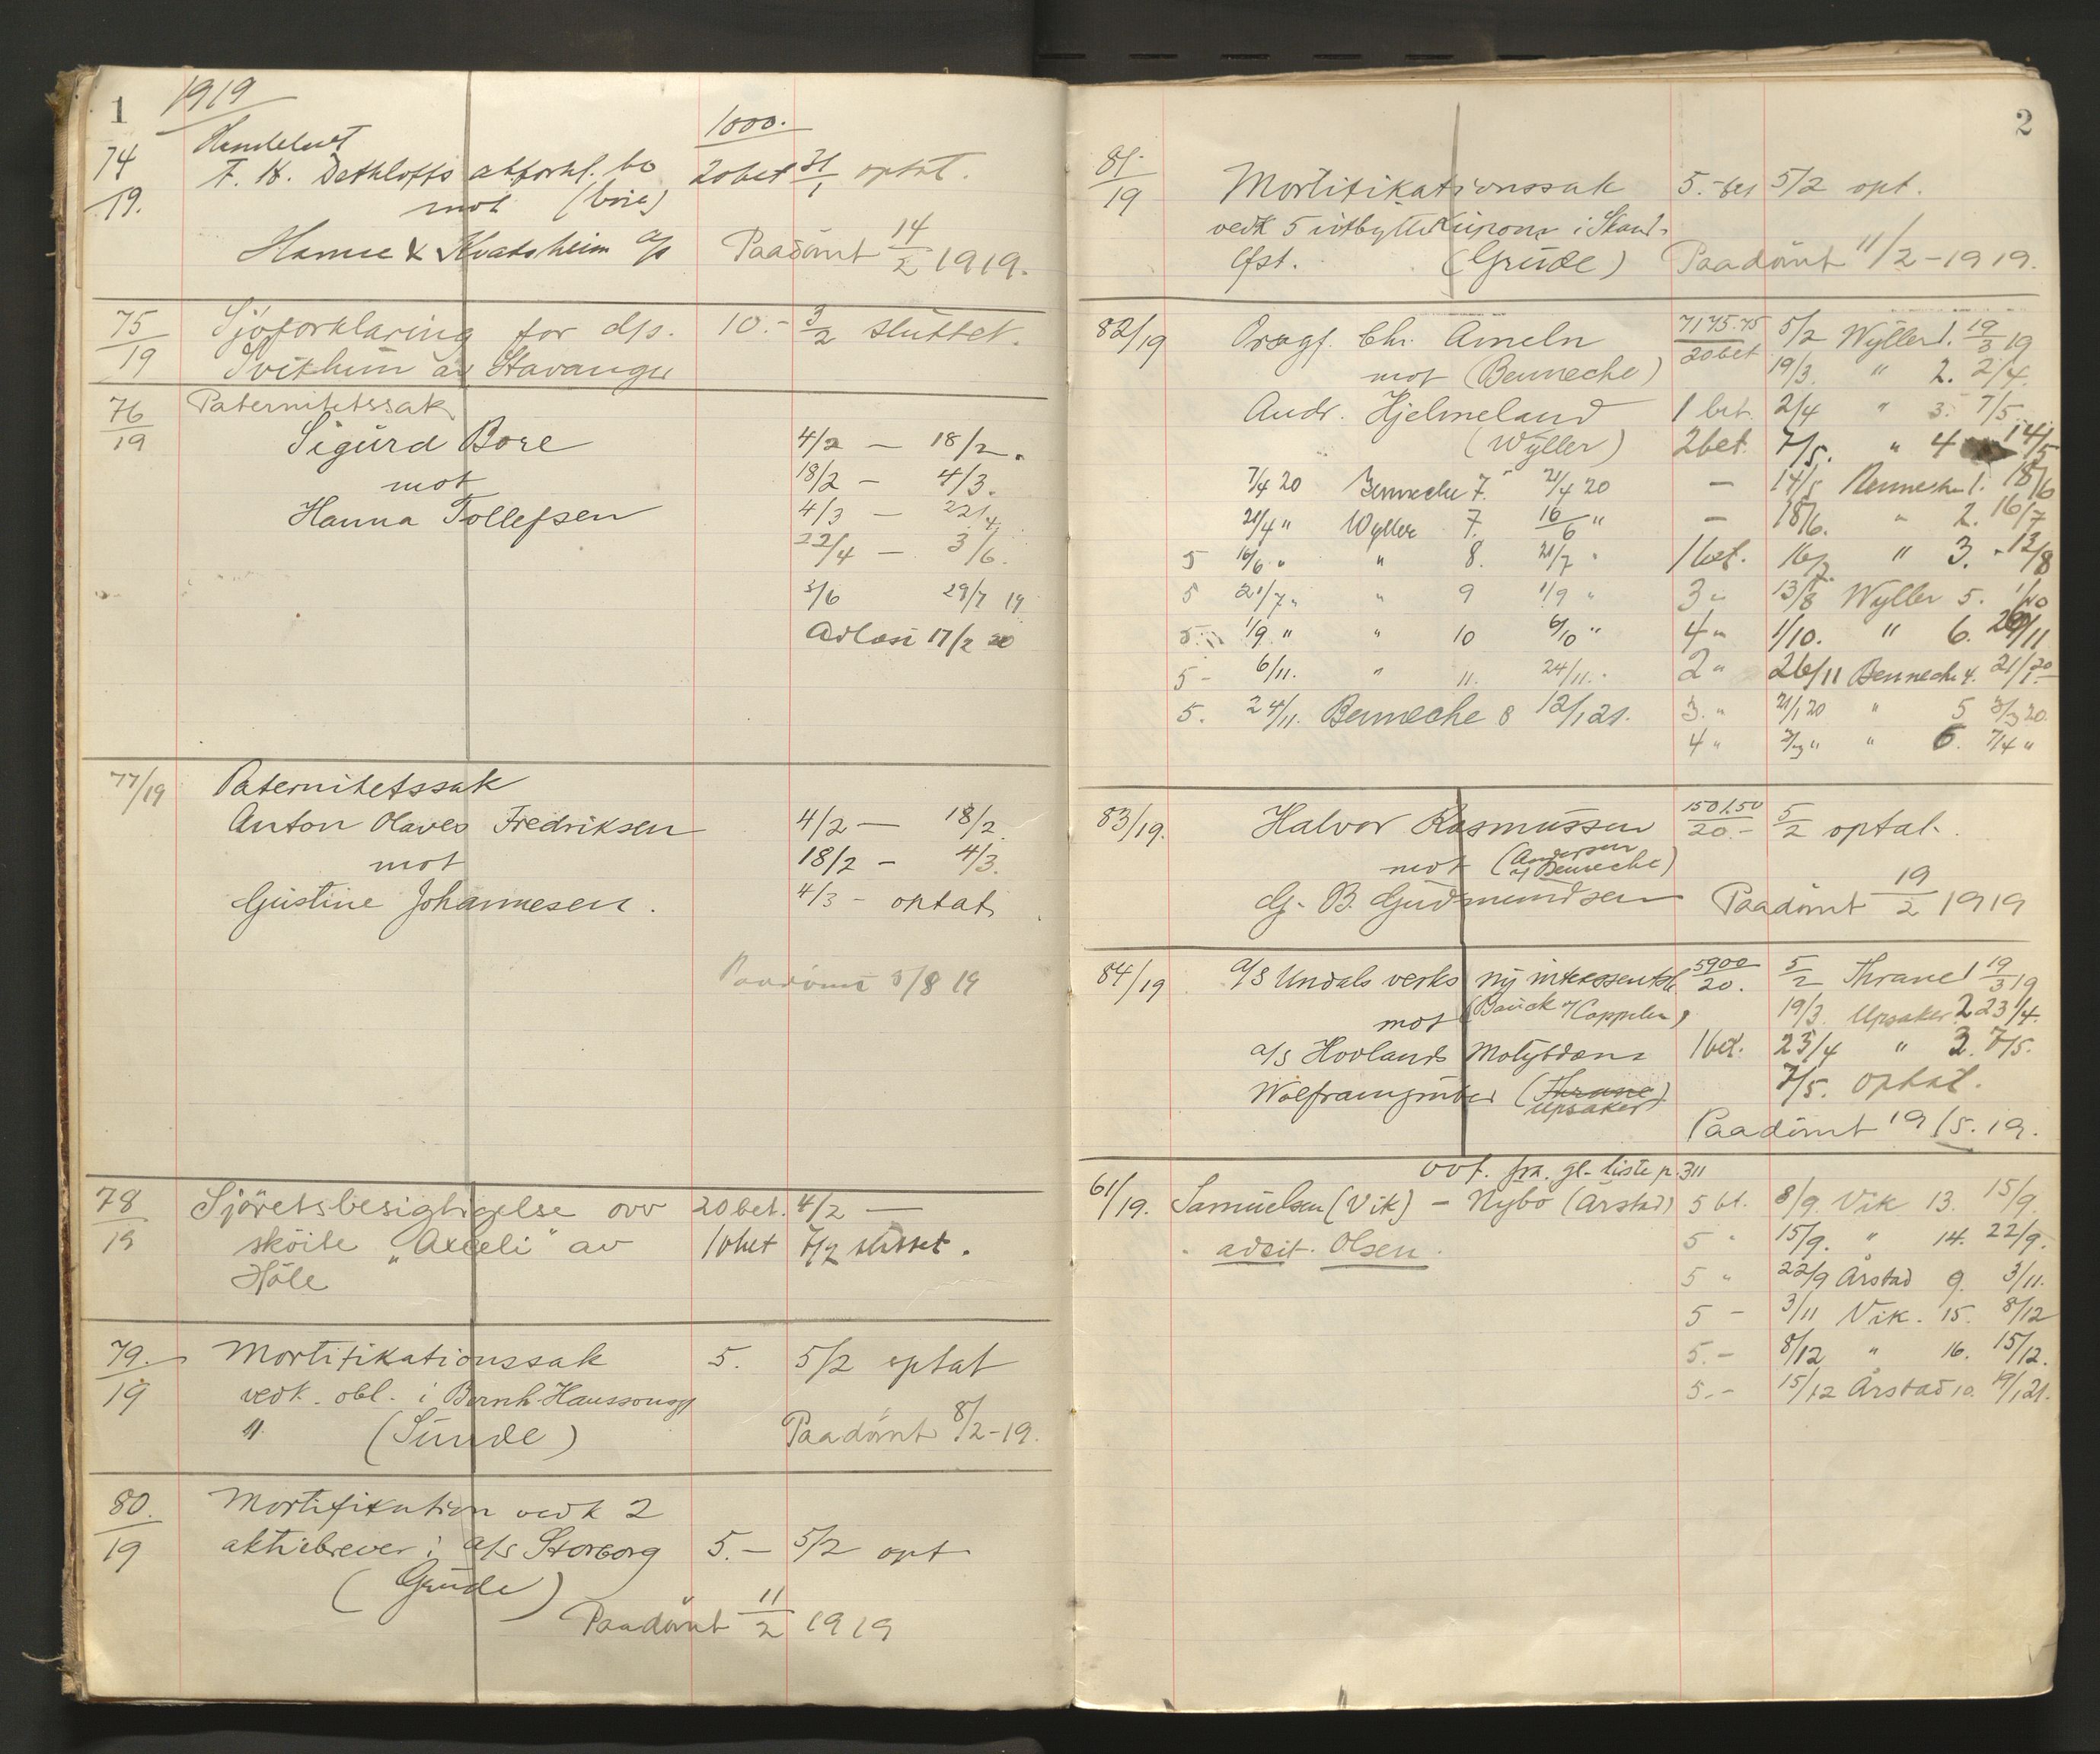 1
1919
1000.
74
19.
F. K. Dethloffs abforkl. bo 20bet 31/1 optat.
mot
Hamre & Kvatsheim a/s Paadömt 14/2 1919.
75/19 Sjöforklaring for d/s. 10.- 3/2 sluttet.
av Stavanger
76/19 Paternitetssak
Sigurd Bore 4/2 - 18/2.
mot 18/2 - 4/3.
Hanna Tollefsen 4/3 - 22/4
22/4 - 3/6.
3/6 29/7 19
17/2 20
77/19 Paternitetssak
Anton Olaves Fredriksen 4/2 - 18/2.
mot 18/2 - 4/3.
Gustine Johannesen. 4/3 - optat
Paadömt 8/8 19
78/19 Sjöretsbesigtigelse ovv 20bet. 4/2 -
sköite av 10bet 7/2 sluttet.
Höle
79./19 Mortifikationssak 5. 5/2 optat
vedk. obl. i Bernh. Hanssons
" (Sunde) Paadömt 8/2-19.
80./19 Mortifikation vedk 2
aktiebrever i a/s Storborg 5.- 5/2 opt
(Grude)
Paadömt 11/2 1919
2
81/19 Mortifikationssak 5.- bet 5/2 opt.
vedk 5 utbyttekupons i Skand.
(Grude) Paadömt 11/2-1919.
82/19 Oragf. Chr. Ameln 7175.75/20bet 5/2 Wyller 1. 19/3 19
mot (Benneche) 19/3. " 2. 2/4.
Andr. Hjelmeland 1 bet. 2/4 " 3. 7/5.
(Wyller) 2bet. 7/5. " 4 14/5
7/4 20 Benneche 7. 21/4 20 - 14/5 Benneche 1. 18/6
21/4 " Wyller 7. 16/6 " - 18/6. " 2. 16/7
5 16/6 " " 8. 21/7 " 1bet. 16/7 " 3. 13/8
5 21/7 " " 9 1/9 " 3 " 13/8 Wyller 5. 1/10
5 1/9 " " 10 6/10 " 4 " 1/10. " 6. 26/11
5 - 6/11. " 11. 24/11. 2 " 26/11 Benneche 4. 21/1 20
5. 24/11. Benneche 8 12/1 21. 3. " 21/1 20 " 5 3/3 20.
4 " 3/3 " " 6. 7/4 "
83/19. Halvor Rasmussen 1501.50/20.- 5/2 optat.
mot (Andersen v/ Benneche)
G. B. Gudmundsen Paadömt 19/2 1919
84/19 a/s Undals verks ny interessentsk. 5900/20. 5/2 Thrane 1 19/3 19
mot (Bauck v/ Cappelen) 19/3. Upsaker 2 23/4.
a/s Hovlands Molybdæn 1bet. 23/4 " 3. 7/5.
Wolframgruber (Thrane) 7/5. optat.
Upsaker
Paadömt 19/5. 19.
ovf. fra. gl. liste p. 311
61/19. Samuelsen (Vik) - Nybö (Årstad) 5 bt. 8/9. Vik 13. 15/9.
adcit. Olsen. 5 " 15/9. " 14. 22/9.
5 " 22/9 Årstad 9. 3/11.
5 - 3/11 Vik. 15. 8/12
5.- 8/12 " 16. 15/12.
5.- 15/12 Årstad 10. 19/1 21.